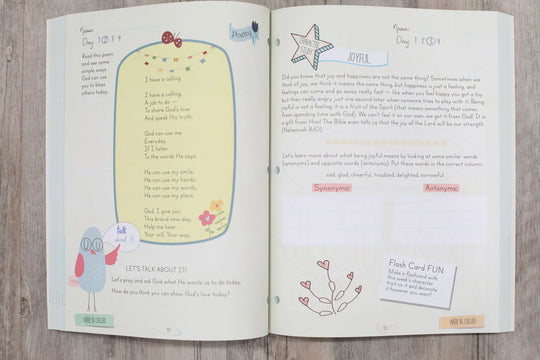 Name:
Day: 1 2 3 4
Poetry
Read this poem
and see some
simple ways
God can use
you to bless
others today.
I have a calling
I have a calling,
A job to do —
To share God's love,
And speak His truth.
God can use me
Everyday
If I listen
To the words He says.
He can use my smile,
He can use my hands,
He can use my words,
He can use my plans.
God, I give you
This brand new day.
Help me hear
Your will, Your way.
Talk
about it!
LET'S TALK ABOUT IT!
Let's pray and ask God what He wants us to do today.
How do you think you can show God's love today?
WEEK 14: CALLED
Name:
Day: 1 2 3 4
CHARACTER
STUDY
JOYFUL
Did you know that joy and happiness are not the same thing? Sometimes when we
think of joy, we think it means the same thing, but happiness is just a feeling, and
feelings can come and go away really fast — like when you feel happy you got a toy
but then really angry just one second later when someone tries to play with it. Being
joyful is not a feeling, it is a fruit of the Spirit (that means something that comes
from spending time with God). We can't feel it on our own, we get it from God! It is
a gift from Him! The Bible even tells us that the joy of the Lord will be our strength
(Nehemiah 8:10).
Let's learn more about what being joyful means by looking at some similar words
(synonyms) and opposite words (antonyms). Put these words in the correct column.
sad, glad, cheerful, troubled, delighted, sorrowful
Synonyms:
Antonyms:
Flash Card FUN
Make a flashcard with
this week's character
trait on it and decorate
it however you want!
WEEK 14: CALLED